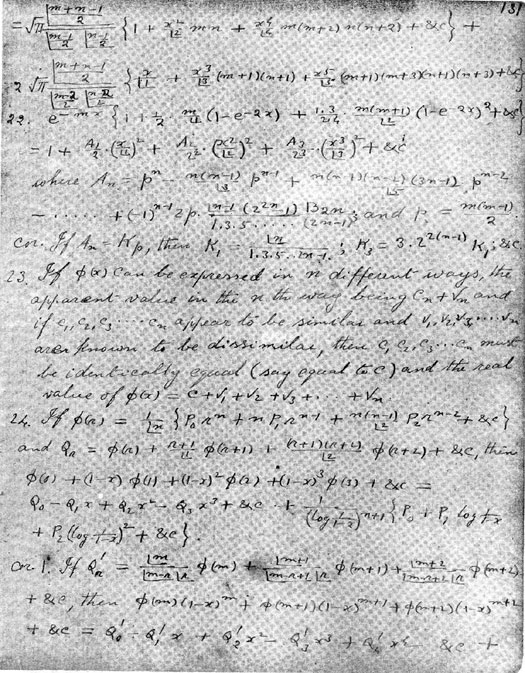 131
= √π |(m+n-1)/2 / |(m-1)/2 |(n-1)/2 {1 + x²/|2 mn + x⁴/|4 m(m+2) n(n+2) + &c} +
2 √π |(m+n-1)/2 / |(m-2)/2 |(n-2)/2 {x/|1 + x³/|3 (m+1)(n+1) + x⁵/|5 (m+1)(m+3)(n+1)(n+3) + &c}
22. e^-mx {1 + 1/2 · m/|1 (1-e^-2x) + 1.3/2.4 · m(m+1)/|2 (1-e^-2x)² + &c}
= 1 + A₁/2 · (x/|1)² + A₂/2² · (x²/|2)² + A₃/2³ · (x³/|3)² + &c
where Aₙ = pⁿ - n(n-1)/|3 pⁿ⁻¹ + n(n-1)(n-2)/|5 (3n-1) pⁿ⁻²
- ..... + (-1)ⁿ⁻¹ 2p. B₂ₙ; and p = m(m-1)/2.
cor. If Aₙ = Kp, then K₁ = |n / 1.3.5..2n-1. ; K₃ = 3.2^2(n-1) K₁; &c
23. If φ(x) can be expressed in n different ways, the
apparent value in the n th way being Cₙ + Vₙ and
if c₁, c₂, c₃ .... cₙ appear to be similar and v₁, v₂, v₃....vₙ
are known to be dissimilar, then c₁ c₂, c₃... cₙ must
be identically equal (say equal to c) and the real
value of φ(x) = c + v₁ + v₂ + v₃ + ... + vₙ
24. If φ(r) = 1/|n {P₀ rⁿ + n P₁ rⁿ⁻¹ + n(n-1)/|2 P₂ rⁿ⁻² + &c}
and Qᵣ = φ(r) + (r+1)/|1 φ(r+1) + (r+1)(r+2)/|2 φ(r+2) + &c, then
φ(0) + (1-x) φ(1) + (1-x)² φ(2) + (1-x)³ φ(3) + &c =
Q₀ - Q₁ x + Q₂ x² - Q₃ x³ + &c + 1/(log 1/(1-x))ⁿ⁺¹ {P₀ + P₁ log 1/(1-x)
+ P₂ (log 1/(1-x))² + &c}.
Cor 1. If Q'ᵣ = |m / |m-r |r φ(m) + |m+1 / |m-r+1 |r φ(m+1) + |m+2 / |m-r+2 |r φ(m+2)
+ &c, then φ(m)(1-x)ᵐ + φ(m+1)(1-x)ᵐ⁺¹ + φ(m+2)(1-x)ᵐ⁺²
+ &c = Q'₀ - Q'₁ x + Q'₂ x² - Q'₃ x³ + Q'₄ x⁴ - &c +